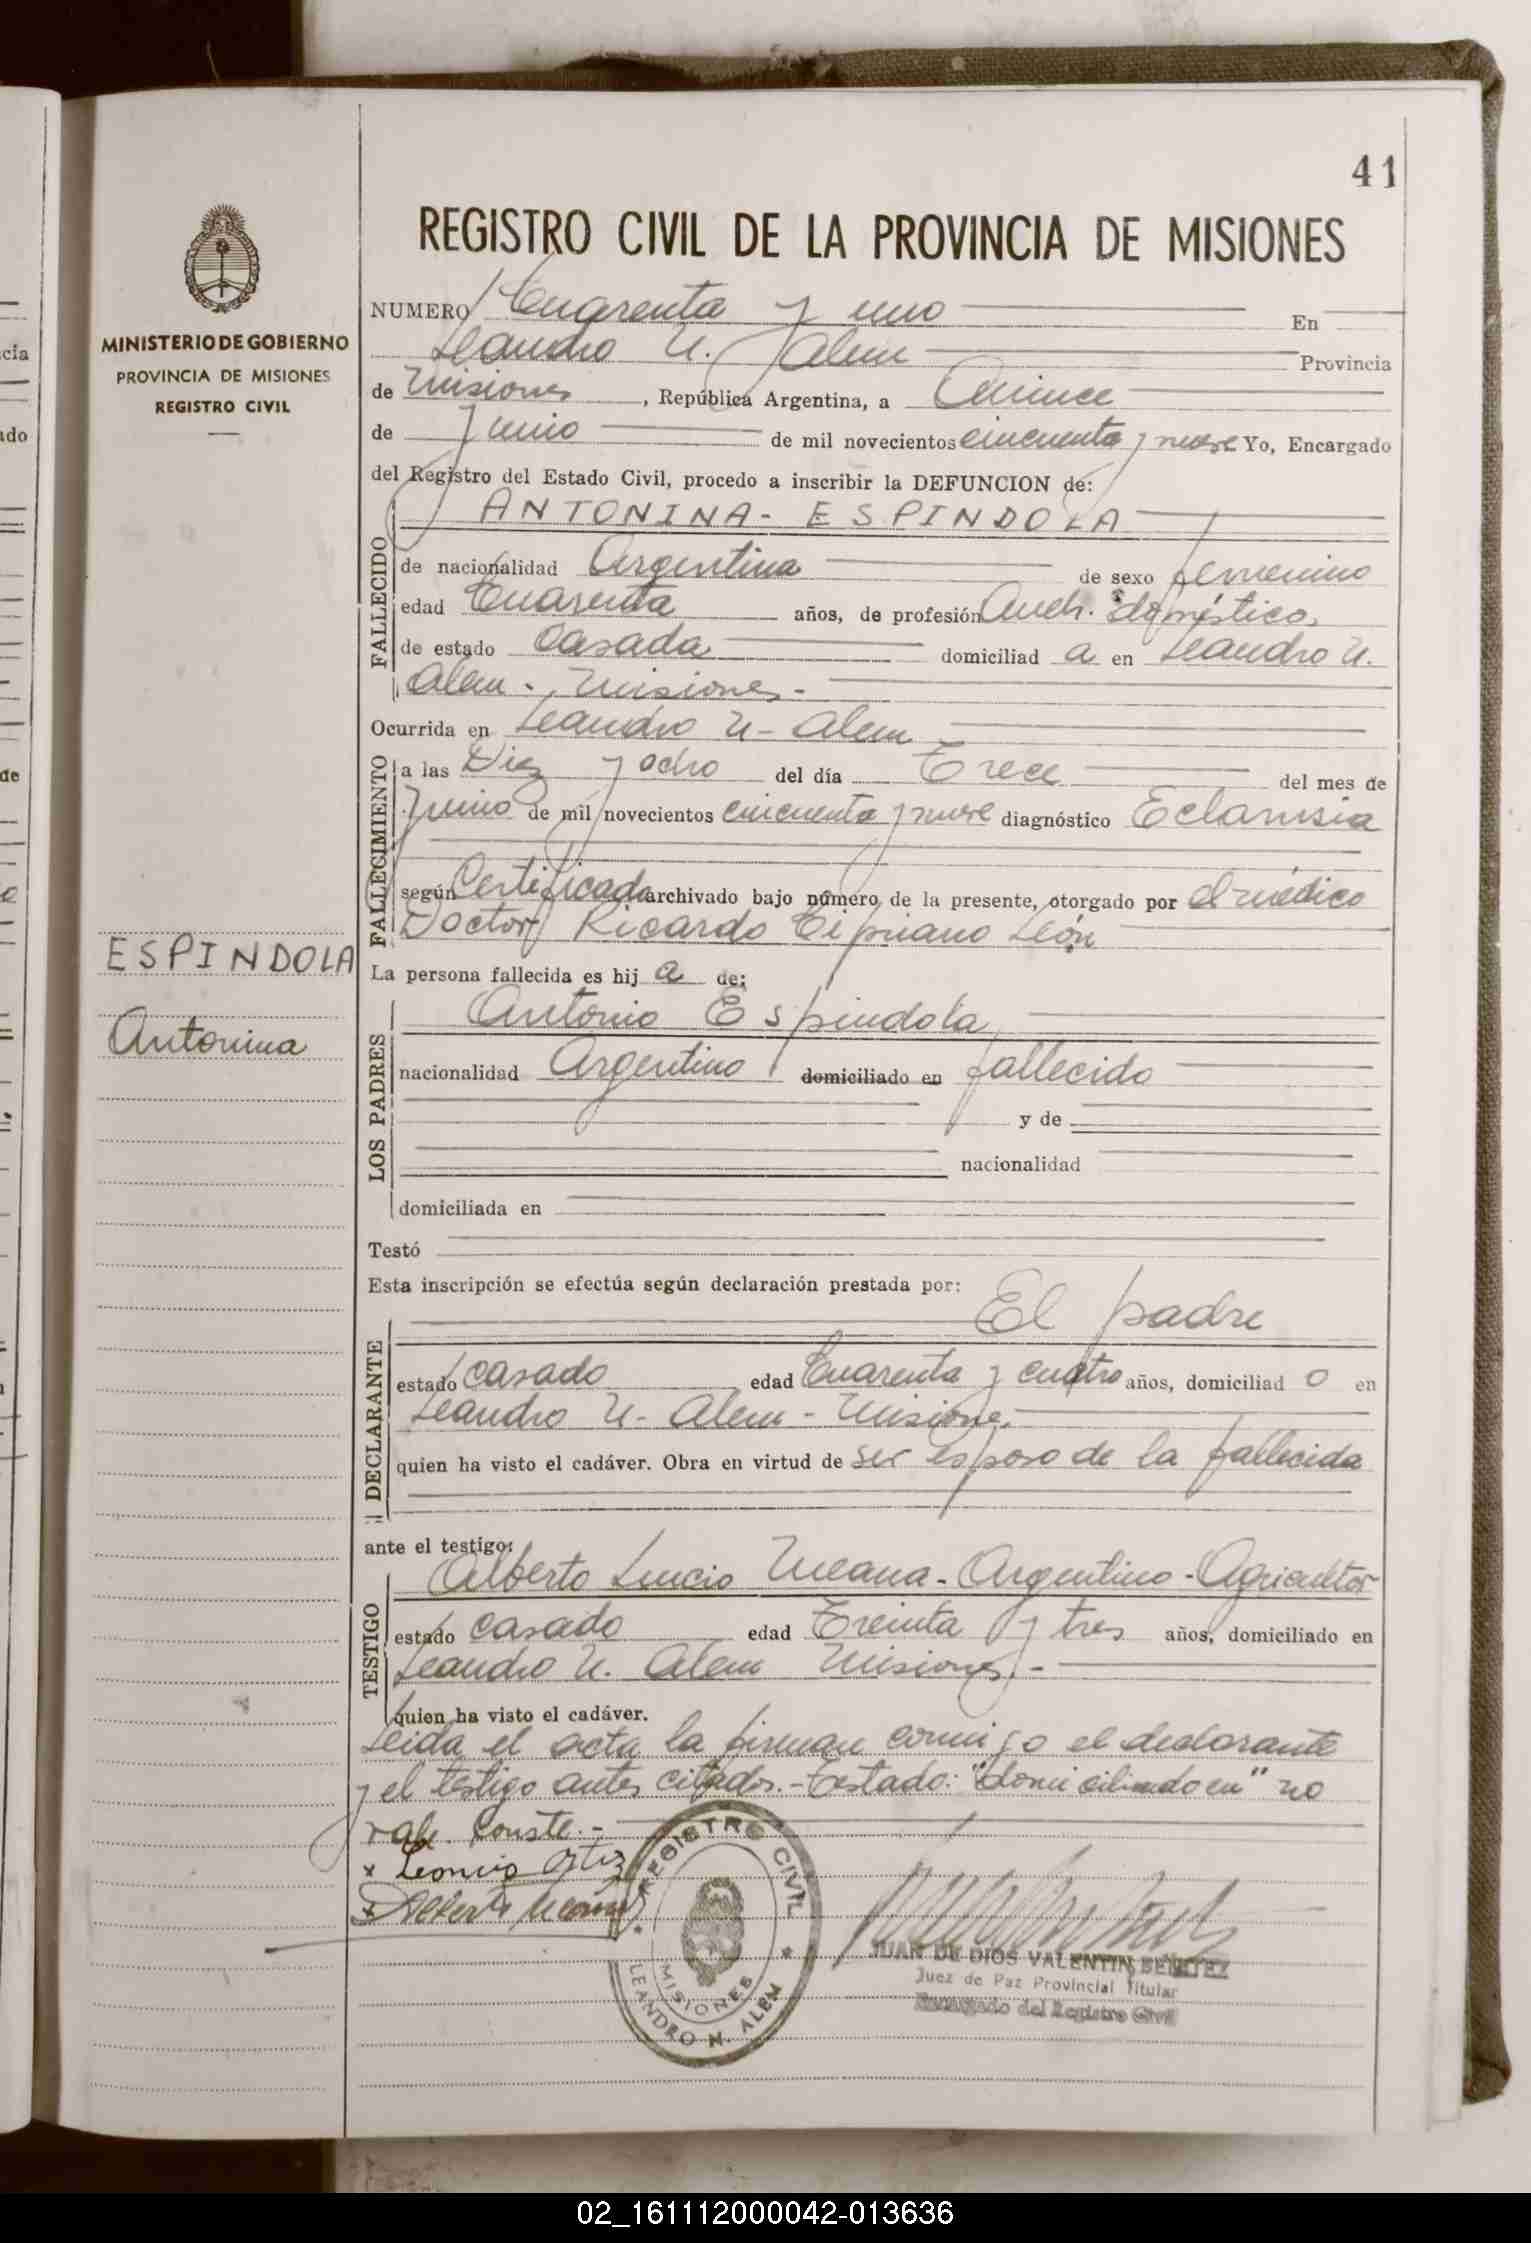 41
REGISTRO CIVIL DE LA PROVINCIA DE MISIONES
MINISTERIO DE GOBIERNO
PROVINCIA DE MISIONES
REGISTRO CIVIL
NUMERO Cuarenta y uno En
Leandro N. Alem Provincia
de Misiones, República Argentina, a Quince
de Junio de mil novecientos cincuenta y nueve Yo, Encargado
del Registro del Estado Civil, procedo a inscribir la DEFUNCION de:
ANTONINA - ESPINDOLA
FALLECIDO
de nacionalidad Argentina de sexo femenino
edad Cuarenta años, de profesión Queh. doméstico,
de estado Casada domiciliad a en Leandro N.
Alem - Misiones -
Ocurrida en Leandro N - Alem
FALLECIMIENTO
a las Diez y ocho del día Trece del mes de
Junio de mil novecientos cincuenta y nueve diagnóstico Eclamsia
según Certificado archivado bajo número de la presente, otorgado por el médico
Doctor Ricardo Cipriano León
ESPINDOLA
Antonina
La persona fallecida es hij a de:
LOS PADRES
Antonio Espindola
nacionalidad Argentino domiciliado en fallecido
y de
nacionalidad
domiciliada en
Testó
Esta inscripción se efectúa según declaración prestada por:
El padre
DECLARANTE
estado casado edad Cuarenta y cuatro años, domiciliad o en
Leandro N - Alem - Misiones.
quien ha visto el cadáver. Obra en virtud de ser esposo de la fallecida
ante el testigo:
TESTIGO
Alberto Lucio Meana - Argentino - Agricultor
estado casado edad Treinta y tres años, domiciliado en
Leandro N. Alem Misiones. -
quien ha visto el cadáver.
Leida el acta la firman conmigo el declarante
y el testigo antes citados. - Testado: "domiciliado en" no
vale. Conste. -
x Leoncio Ortiz
x Alberto Meana
REGISTRO CIVIL
MISIONES
LEANDRO N. ALEM
JUAN DE DIOS VALENTIN BENITEZ
Juez de Paz Provincial Titular
Encargado del Registro Civil
cia
ado
de
02_161112000042-013636